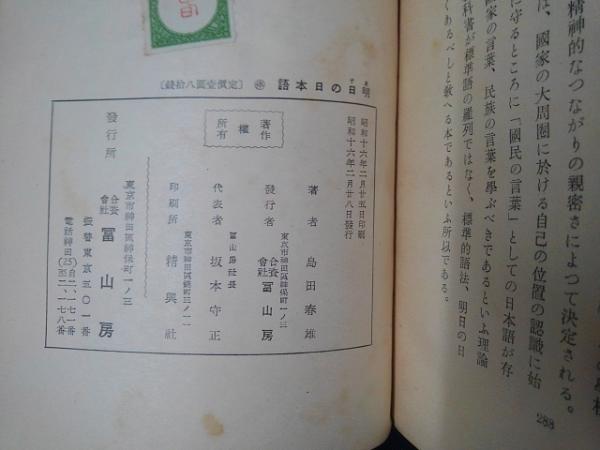 精神的なつながりの親密さによつて決定される。
は、國家の大周圏に於ける自己の位置の認識に始
に守るところに「國民の言葉」としての日本語が存
國家の言葉、民族の言葉を學ぶべきであるといふ理論
科書が標準語の羅列ではなく、標準的語法、明日の日
くあるべしと敎へる本であるといふ所以である。
288
明日の日本語
〔定價壹圓八拾錢〕
著作
權
所有
昭和十六年二月廿五日印刷
昭和十六年二月廿八日發行
著者 島田春雄
東京市神田區神保町一ノ三
發行者 合資會社 冨山房
冨山房社長
代表者 坂本守正
東京市神田區錦町三ノ一一
印刷所 精興社
發行所
東京市神田區神保町一ノ三
合資會社 冨山房
振替東京五〇一番
電話神田(25)自二、一七一番至二、一七八番